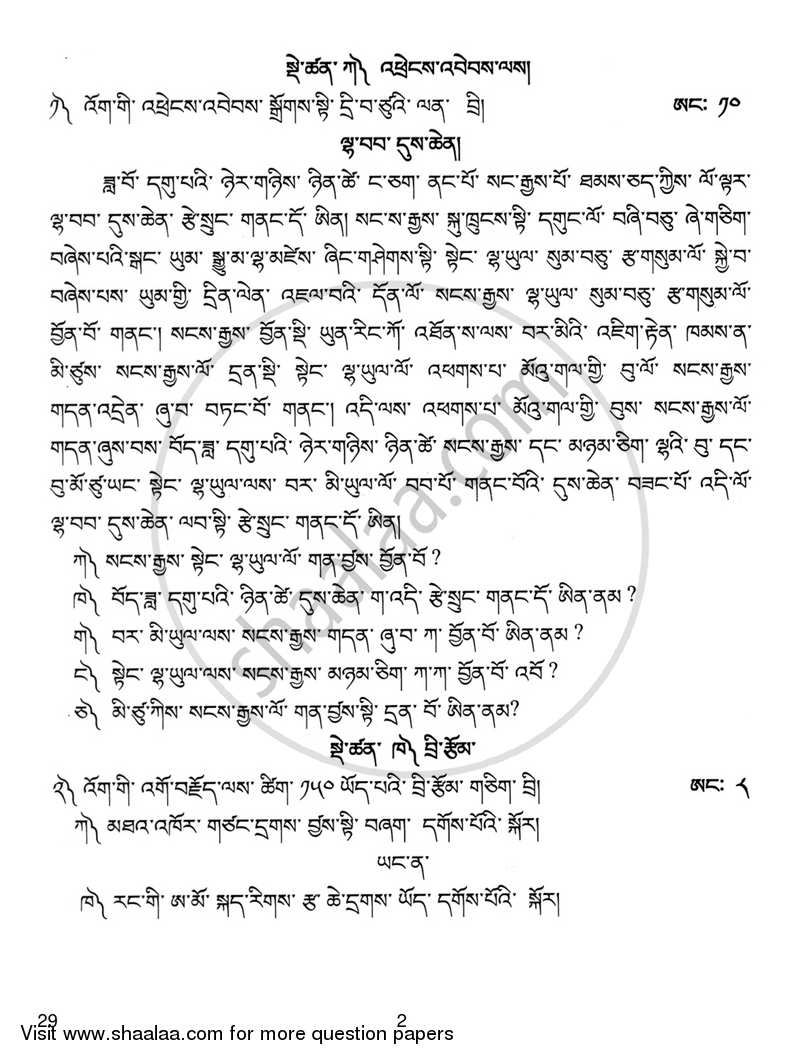 སྡེ་ཚན་ ཀ༽ འཕྲེངས་འབེབས་ལས།
༡༽ འོག་གི་ འཕྲེངས་འབེབས་ སྒྲོགས་སྟི་ དྲི་བ་ཙུའི་ ལན་ བྲི། ཨང་: ༡༠
ལྷ་བབ་ དུས་ཆེན།
ཟླ་བོ་ དགུ་པའི་ ཉེར་གཉིས་ ཉིན་ཚེ་ ང་ཅག་ ནང་པོ་ སང་རྒྱས་པོ་ ཐམས་ཅད་ཀྱིས་ ལོ་ལྟར་
ལྷ་བབ་ དུས་ཆེན་ རྩེ་སྲུང་ གནང་དོ་ ཨིན། སང་ས་རྒྱས་ སྐུ་ཁྲུངས་སྟི་ དགུང་ལོ་ བཞི་བཅུ་ ཞེ་གཅིག་
བཞེས་པའི་སྒང་ ཡུམ་ སྒྱུ་མ་ལྷ་མཛེས་ ཞིང་གཤེགས་སྟི་ སྟེང་ ལྷ་ཡུལ་ སུམ་བཅུ་ རྩ་གསུམ་ལོ་ སྐྱེ་བ་
བཞེས་པས་ ཡུམ་གྱི་ དྲིན་ལེན་ འཇལ་བའི་ དོན་ལོ་ སངས་རྒྱས་ ལྷ་ཡུལ་ སུམ་བཅུ་ རྩ་གསུམ་ལོ་
བྱོན་བོ་ གནང་། སངས་རྒྱས་ བྱོན་སྡི་ ཡུན་རིང་ཀོ་ འཐོན་ས་ལས་ བར་མིའི་ འཇིག་རྟེན་ ཁམས་ན་
མི་ཙུས་ སངས་རྒྱས་ལོ་ དྲན་སྡི་ སྟེང་ ལྷ་ཡུལ་ལོ་ འཕགས་པ་ མོའུ་གལ་གྱི་ བུ་ལོ་ སངས་རྒྱས་
གདན་འདྲེན་ ཞུ་བ་ བཏང་བོ་ གནང་། འདི་ལས་ འཕགས་པ་ མོའུ་གལ་གྱི་ བུས་ སངས་རྒྱས་ལོ་
གདན་ཞུས་བས་ བོད་ཟླ་ དགུ་པའི་ ཉེར་གཉིས་ ཉིན་ཚེ་ སངས་རྒྱས་ དང་ མཉམ་ཅིག་ ལྷའི་ བུ་ དང་
བུ་མོ་ཙུ་ཡང་ སྟེང་ ལྷ་ཡུལ་ལས་ བར་ མི་ཡུལ་ལོ་ བབ་པོ་ གནང་བོའི་ དུས་ཆེན་ བཟང་པོ་ འདི་ལོ་
ལྷ་བབ་ དུས་ཆེན་ ལབ་སྟི་ རྩེ་སྲུང་ གནང་དོ་ ཨིན།
ཀ༽ སངས་རྒྱས་ སྟེང་ ལྷ་ཡུལ་ལོ་ གན་བྱས་ བྱོན་བོ་ ?
ཁ༽ བོད་ཟླ་ དགུ་པའི་ ཉིན་ཚེ་ དུས་ཆེན་ ག་འདི་ རྩེ་སྲུང་ གནང་དོ་ ཨིན་ནམ ?
ག༽ བར་ མི་ཡུལ་ལས་ སངས་རྒྱས་ གདན་ ཞུ་བ་ ཀ་ བྱོན་བོ་ ཨིན་ནམ ?
ང༽ སྟེང་ ལྷ་ཡུལ་ལས་ སངས་རྒྱས་ མཉམ་ཅིག་ ཀ་ཀ་ བྱོན་བོ་ འབོ ?
ཅ༽ མི་ཙུ་ཀིས་ སངས་རྒྱས་ལོ་ གན་བྱས་སྟི་ དྲན་ བོ་ ཨིན་ནམ?
སྡེ་ཚན་ ཁ༽ བྲི་རྩོམ་
༢༽ འོག་གི་ འགོ་བརྗོད་ལས་ ཚིག་ ༡༥༠ ཡོད་པའི་ བྲི་རྩོམ་ གཅིག་ བྲི། ཨང་: ༨
ཀ༽ མཐའ་འཁོར་ གཙང་དྲགས་ བྱས་སྟི་ བཞག་ དགོས་པོའི་ སྐོར།
ཡང་ན་
ཁ༽ རང་གི་ ཨ་མོ་ སྐད་རིགས་ རྩ་ ཆེ་དྲགས་ ཡོད་ དགོས་པོའི་ སྐོར།
shaalaa.com
29 2
Visit www.shaalaa.com for more question papers